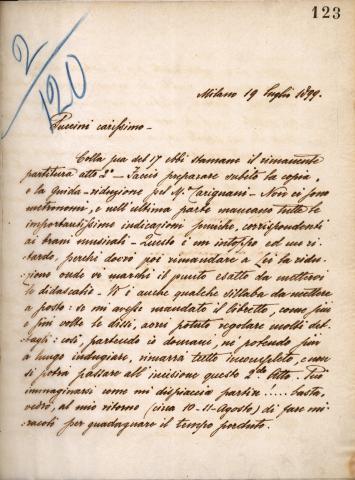 123
2/120
Milano 19 luglio 1899.
Puccini carissimo -
Colla sua del 17 ebbi stamane il rimanente
partitura atto 2° - Faccio preparare subito la copia,
e la guida-riduzione pel M.° Carignani - Non ci sono
metronomi, e nell'ultima parte mancano tutte le
importantissime indicazioni sceniche, corrispondenti
ai brani musicali - Questo è un intoppo ed un ri-
tardo, perchè dovrò poi rimandare a Lei la ridu-
zione onde vi marchi il punto esatto da mettervi
le didascalie - V'è anche qualche sillaba da mettere
a posto: se mi avesse mandato il libretto, come più
e più volte le dissi, avrei potuto regolare molti det-
tagli: così, partendo io domani, nè potendo più
a lungo indugiare, rimarrà tutto incompleto, e non
si potrà passare all'incisione questo 2do Atto. Può
immaginarsi come mi dispiaccia partire!..... basta,
vedrò, al mio ritorno (circa 10-11 Agosto) di fare mi-
racoli per guadagnare il tempo perduto.